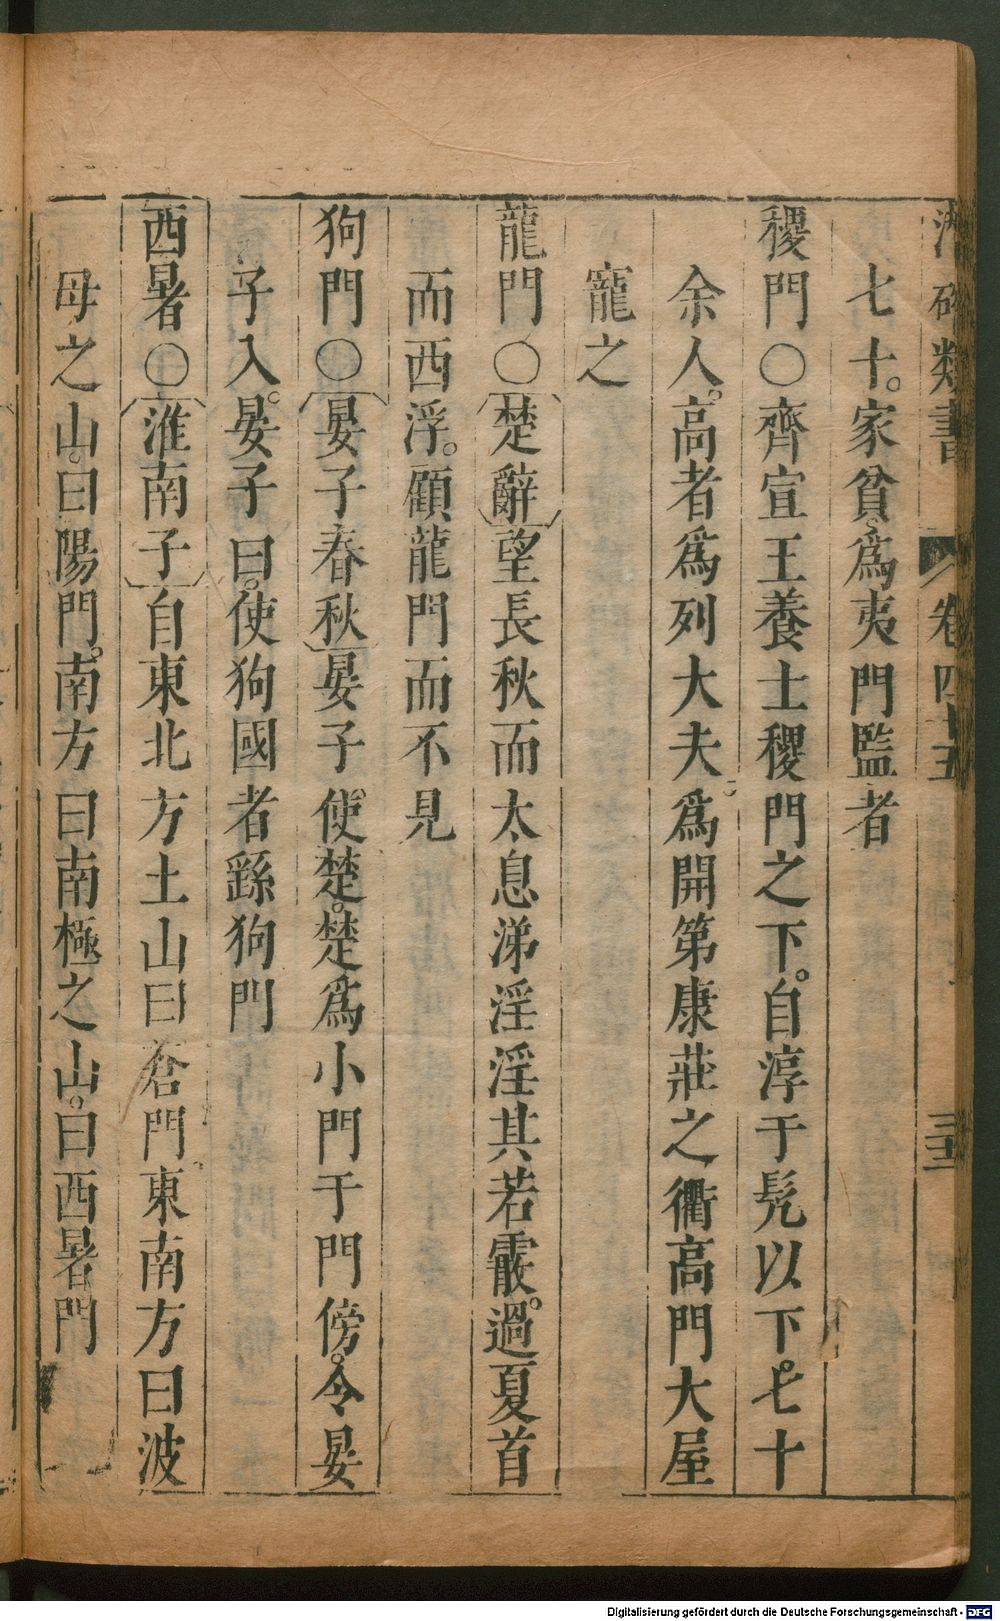 潛確類書 卷四十五 三十三
七十。家貧、爲夷門監者
稷門〇齊宣王養士稷門之下。自淳于髠以下。七十
余人。高者爲列大夫。爲開第康莊之衢高門大屋
寵之
龍門〇楚辭望長秋而太息涕淫淫其若霰。過夏首
而西浮。顧龍門而不見
狗門〇晏子春秋晏子使楚。楚爲小門于門傍。令晏
子入。晏子曰。使狗國者繇狗門
西暑〇淮南子自東北方土山曰蒼門東南方曰波
母之山。曰陽門。南方曰南極之山。曰西暑門
Digitalisierung gefördert durch die Deutsche Forschungsgemeinschaft - DFG